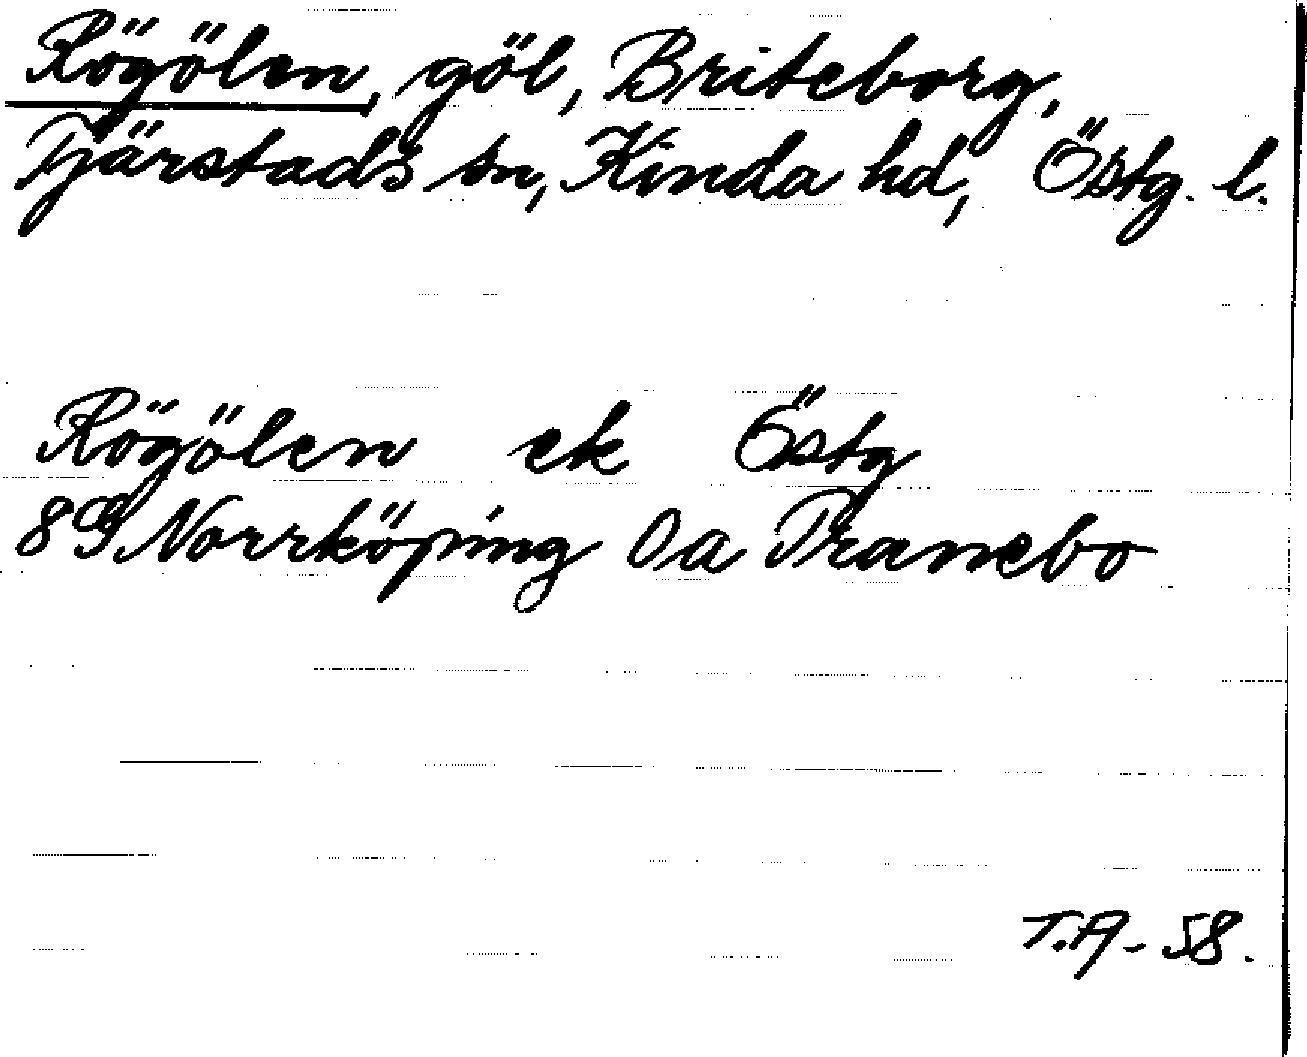 Rögölen, göl, Briteborg,
Tjärstads sn, Kinda hd, Östg. l.
Rögölen ek Östg
8G Norrköping Oa Tranebo
T.A- 58.